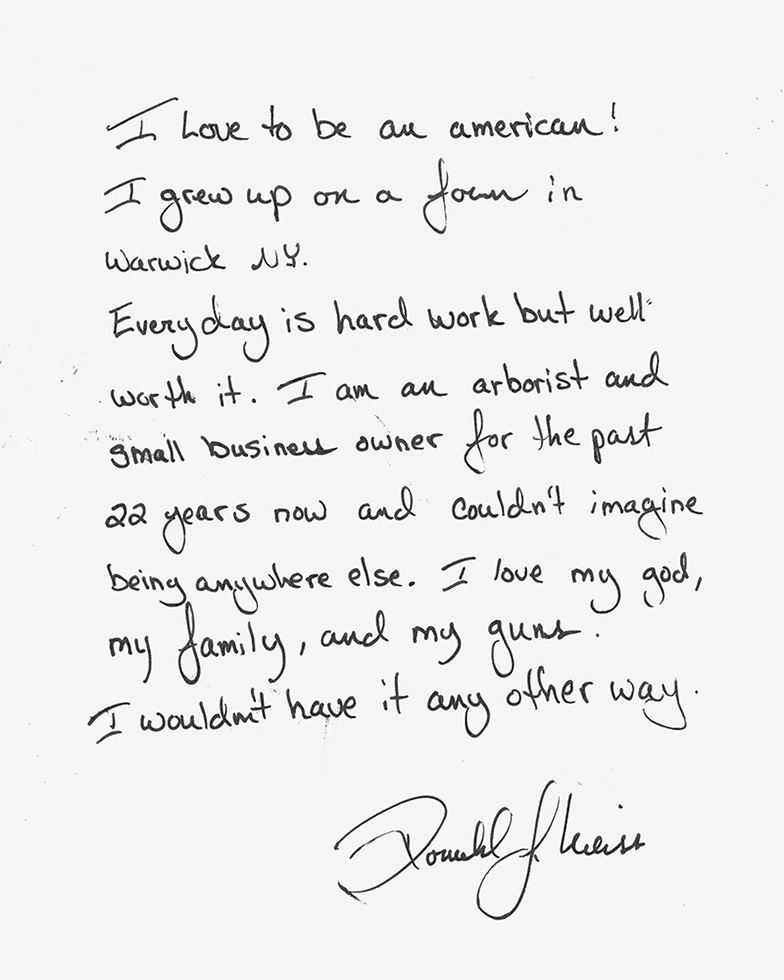 I Love to be an american!
I grew up on a farm in
Warwick NY.
Everyday is hard work but well
worth it. I am an arborist and
small business owner for the past
22 years now and couldn't imagine
being anywhere else. I love my god,
my family, and my guns.
I wouldn't have it any other way.
Donald J